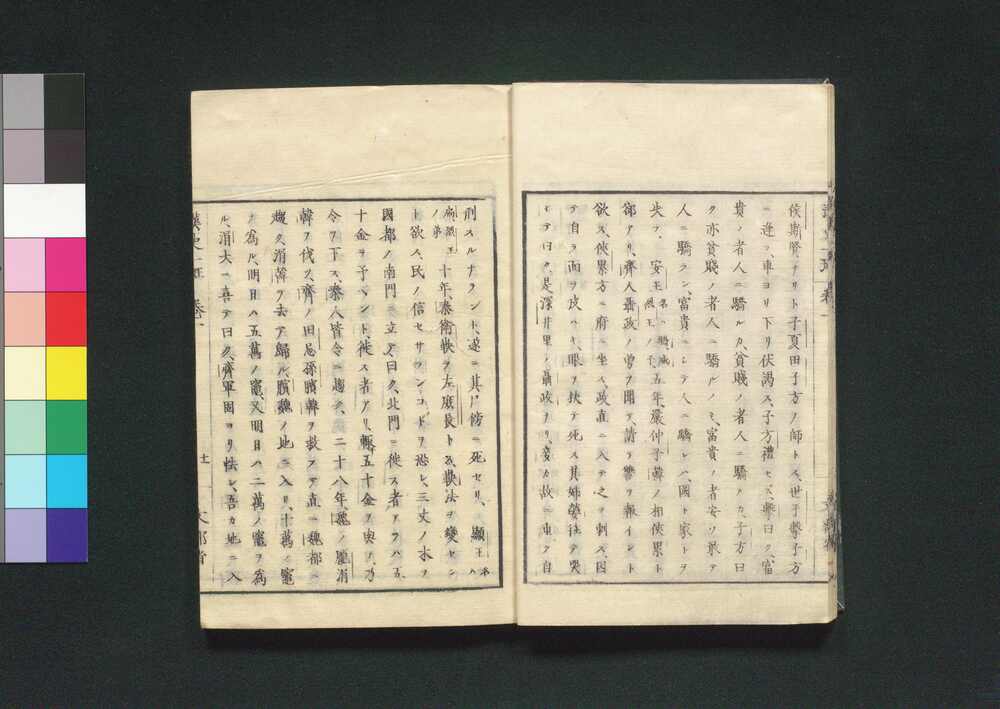 侯斯賢ナリト子夏田子方ノ師トス、世子擊子方
ニ逢フ、車ヨリ下リ伏謁ス、子方禮セス、擊曰ク、富
貴ノ者人ニ驕ルカ、貧賤ノ者人ニ驕ルカ、子方曰
ク亦貧賤ノ者人ニ驕ルノミ、富貴ノ者安ソ敢テ
人ニ驕ラン、富貴ニシテ人ニ驕レハ、國ト家トヲ
失フ、安王名ハ驕威烈王ノ子、五年嚴仲子韓ノ相俠累ト
郤アリ、齊人聶政ノ勇ヲ聞テ、請テ讐ヲ報イント
欲ス、俠累方ニ府ニ坐ス、政直ニ入テ之ヲ刺ス、因
テ自ラ面ヲ皮ハキ、眼ヲ抉テ死ス其姊嫈往テ哭
シテ曰ク、是深井里ノ聶政ナリ、妾カ故ニ重ク自
刑スルナラント、遂ニ其尸傍ニ死セリ、顯王名ハ
扁、烈王ノ弟十年、秦衛鞅ヲ左庶長トス、鞅法ヲ變セン
ト欲ス、民ノ信セサランコトヲ恐レ、三丈ノ木ヲ
國都ノ南門ニ立テ曰ク、北門ニ徙ス者アラハ五
十金ヲ予ヘント徙ス者アリ、輙五十金ヲ與フ、乃
令ヲ下ス、秦人皆令ニ趨ク、二十八年魏ノ龐涓
韓ヲ伐ス、齊ノ田忌孫臏韓ヲ救フテ直ニ魏都ニ
趨ク、涓韓ヲ去テ歸ル、臏魏ノ地ニ入リ、十萬ノ竈
ヲ為ル、明日ハ五萬ノ竈、又明日ハ二萬ノ竈ヲ為
ル、涓大ニ喜テ曰ク、齊軍固ヨリ怯シ、吾カ地ニ入
漢史一班 卷一 文部省